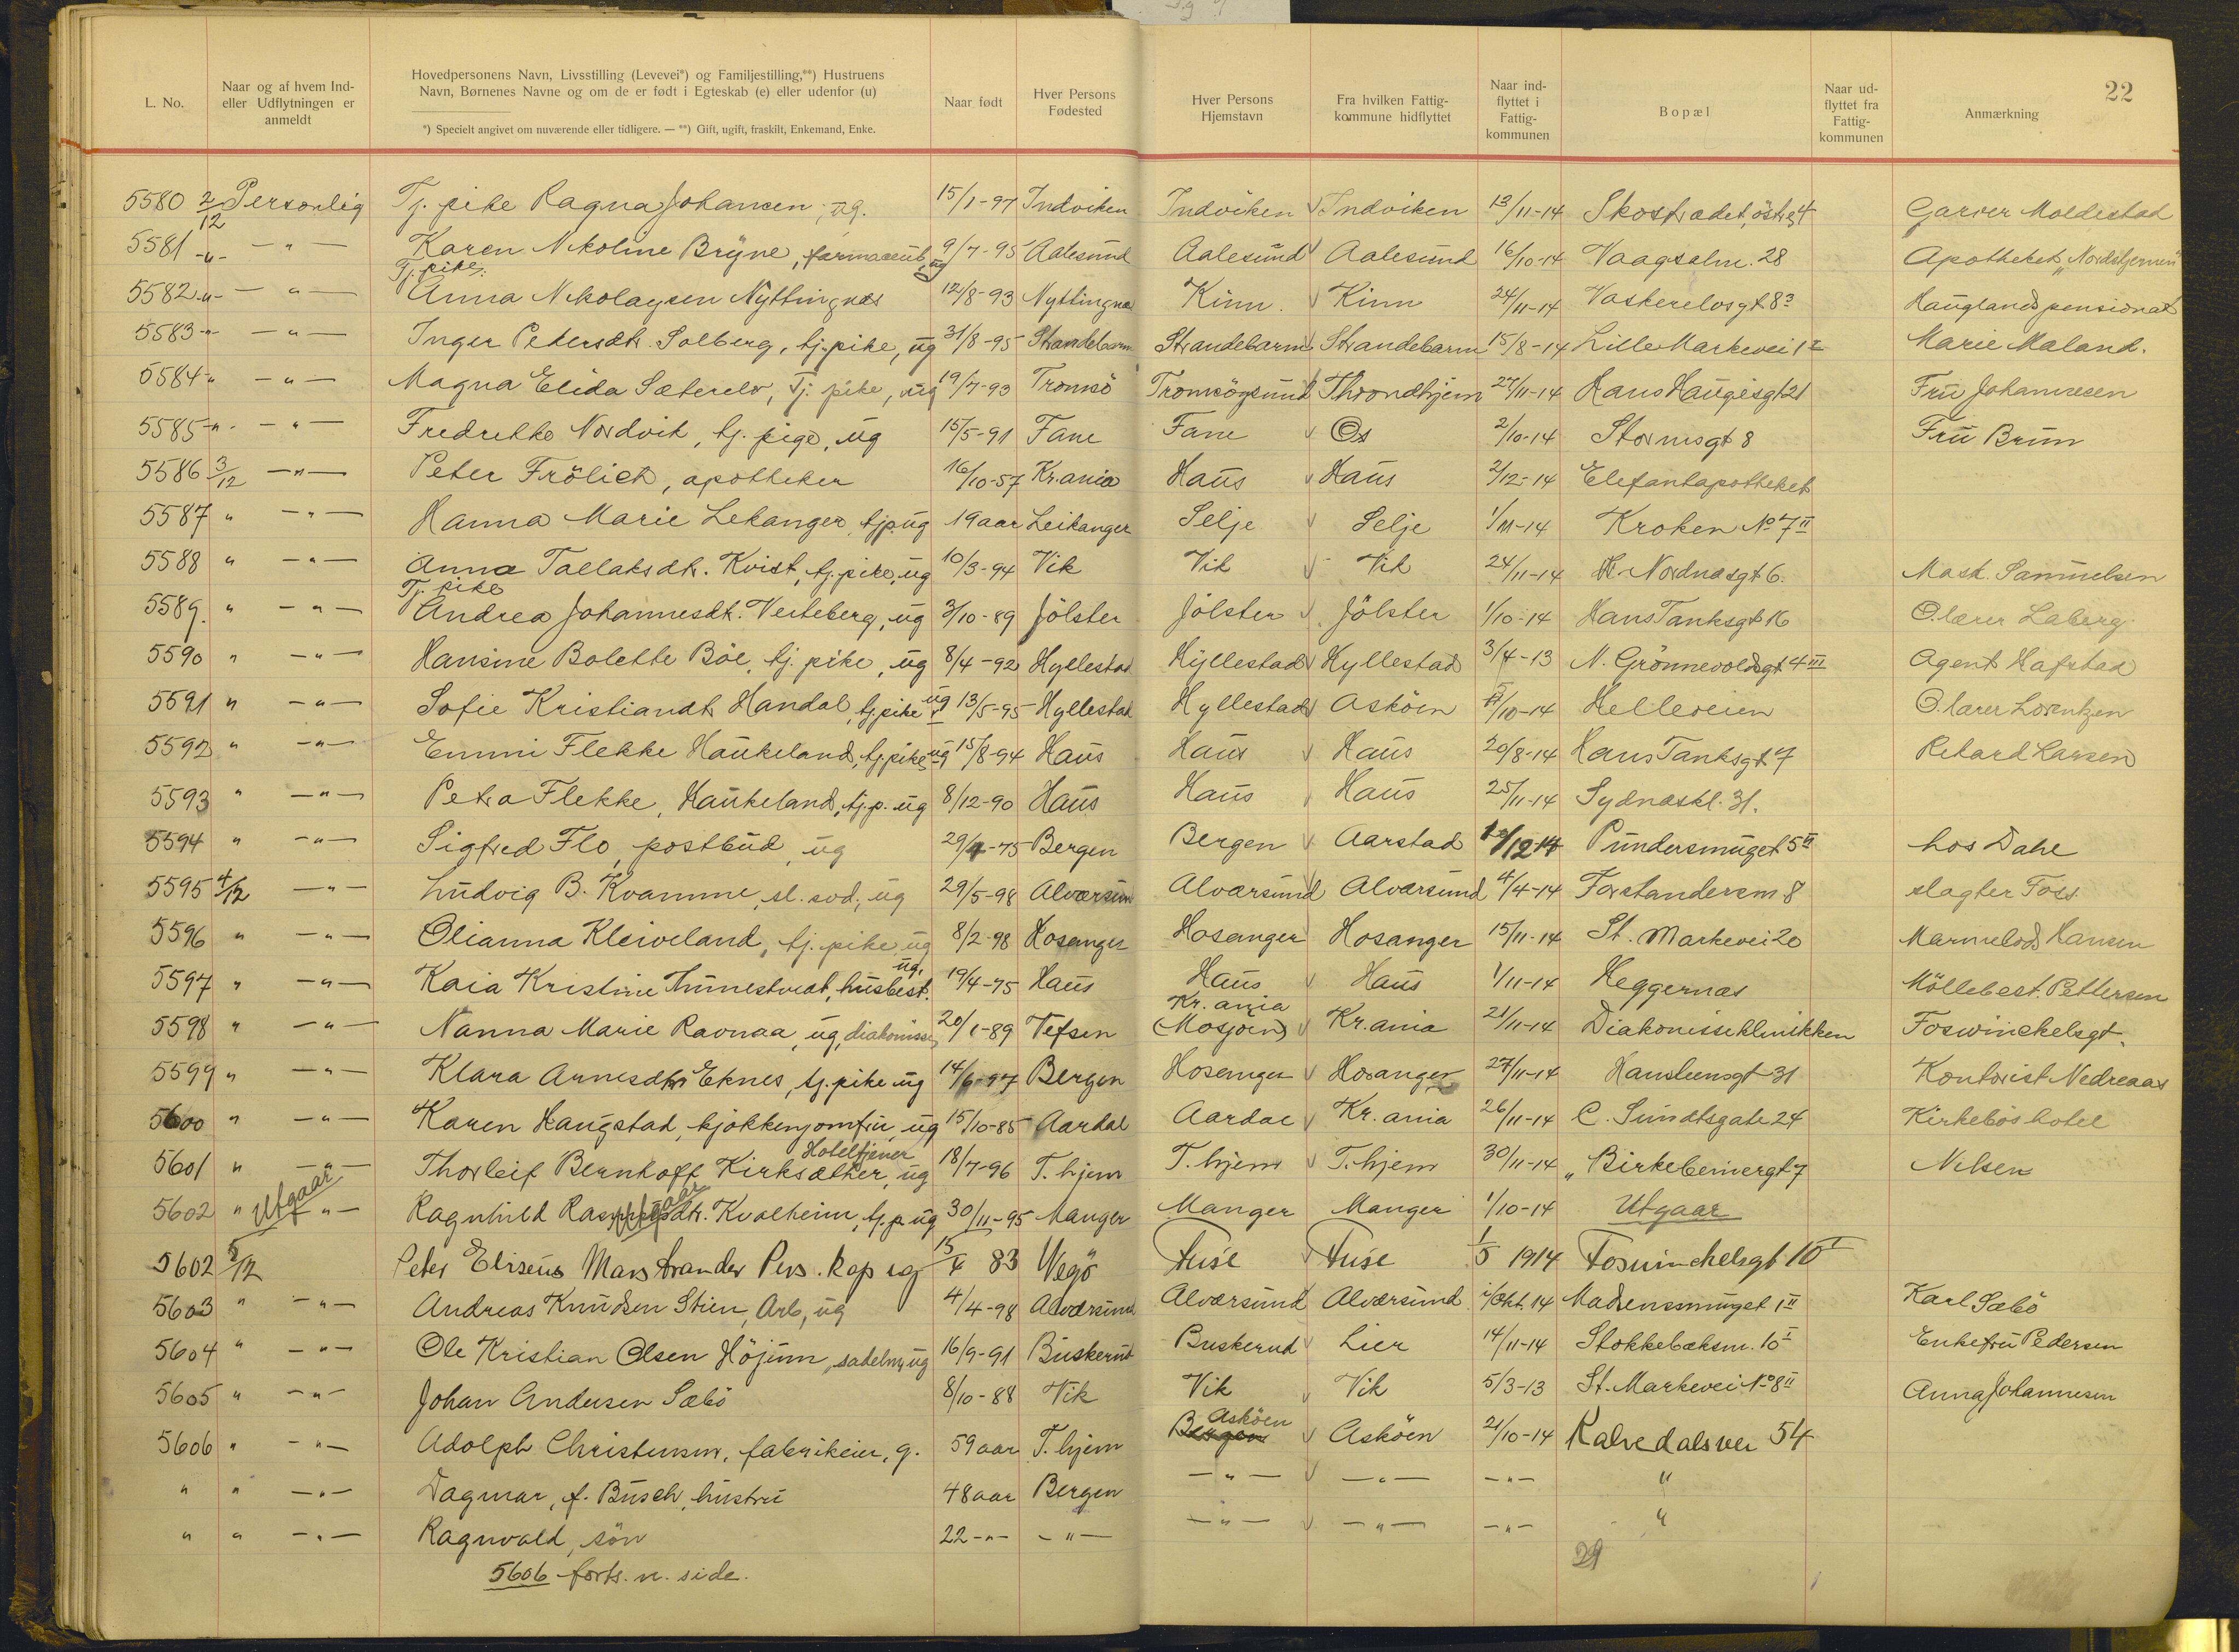 22
L. No.
Naar og af hvem Ind- eller Udflytningen er anmeldt
Hovedpersonens Navn, Livsstilling (Levevei*) og Familjestilling,**) Hustruens Navn, Børnenes Navne og om de er født i Egteskab (e) eller udenfor (u)
*) Specielt angivet om nuværende eller tidligere. — **) Gift, ugift, fraskilt, Enkemand, Enke.
Naar født
Hver Persons Fødested
Hver Persons Hjemstavn
Fra hvilken Fattig- kommune hidflyttet
Naar ind- flyttet i Fattig- kommunen
Bopæl
Naar ud- flyttet fra Fattig- kommunen
Anmærkning
5580 2/12 Personlig Tj. pike Ragna Johansen, ug. 15/1-97 Indviken Indviken Indviken 13/11-14 Skostrædet, östre 4 Garver Moldestad
5581 -"- -"- Karen Nikoline Bryne, farmaceut, ug 9/7-95 Aalesund Aalesund Aalesund 16/10-14 Vaagsalm. 28 Apotheket "Nordstjernen"
5582 -"- -"- Tj. pike Anna Nikolaysen Nyttingnes 12/8-93 Nyttingnes Kinn Kinn 24/11-14 Vaskerelvsgt 8³ Hauglands pensionat
5583 -"- -"- Inger Pedersdtr. Solberg, tj. pike, ug 31/8-95 Strandebarm Strandebarm Strandebarm 15/8-14 Lille Markevei 1 Marie Maland.
5584 " -"- Magna Elida Sæterelv, Tj. pike, ug 19/7-93 Tromsö Tromsöysund Throndhjem 27/11-14 Hans Haugesgt 21 Fru Johannesen
5585 -"- -"- Fredrikke Nordvik, tj. pige, ug 15/5-91 Fane Fane Os 2/10-14 Stormsgt 8 Fru Brun
5586 3/12 -"- Peter Frölich, apotheker 16/10-57 Kr.ania Haus Haus 2/12-14 Elefantapotheket
5587 " -"- Hanna Marie Lekanger, tj.p. ug 19 aar Leikanger Selje Selje 1/11-14 Kroken No 7 II
5588 " -"- Anna Tallaksdtr. Kvist, tj. pike, ug 10/3-94 Vik Vik Vik 24/11-14 Kl. Nordnæsgt 6. Mask. Samuelsen
5589. " -"- Tj. pike Andrea Johannesdtr. Veiteberg, ug 3/10-89 Jölster Jölster Jölster 1/10-14 Hans Tanksgt 16 O.lærer Laberg
5590 " -"- Hansine Bolette Böe, tj. pike, ug 8/4-92 Hyllestad Hyllestad Hyllestad 3/4-13 N. Grönnevoldsgt 4 III Agent Hafstad
5591 " -"- Sofie Kristiandtr Handal, tj. pike ug 13/5-95 Hyllestad Hyllestad Asköen /10-14 Helleveien O.lærer Lorentzen
5592 " -"- Emmi Flekke Haukeland, tj. pike, ug 15/8-94 Haus Haus Haus 20/8-14 Hans Tanksgt 7 Rikard Larsen
5593 " -"- Petra Flekke, Haukeland, tj.p. ug 8/12-90 Haus Haus Haus 25/11-14 Sydnæskl. 31.
5594 " -"- Sigfred Flo, postbud, ug 29/4-75 Bergen Bergen Aarstad /12-14 Pundersmuget 5 II hos Dahl
5595 4/12 -"- Ludvig B. Kvamme, sl. svd., ug 29/5-98 Alværsun Alværsund Alværsund 4/4-14 Forstandersm 8 slagter Foss
5596 " -"- Olianna Kleiveland, tj. pike ug 8/2-98 Hosanger Hosanger Hosanger 15/11-14 St. Markevei 20 Hansen
5597 " -"- Kaia Kristine Thunestvedt, husbest. ug. 19/4-75 Haus Haus Haus 1/11-14 Heggernæs Möllebest. Pettersen
5598 " -"- Nanna Marie Ravnaa, ug, diakonisse 20/1-89 Vefsen Kr.ania (Mosjöen) Kr.ania 21/11-14 Diakonisseklinikken Foswinckelsgt.
5599 " -"- Klara Arnesdtr Eknes, tj. pike ug 14/6-97 Bergen Hosanger Hosanger 27/11-14 Hansteensgt 31 Kontorist Nedreaas
5600 " -"- Karen Haugstad, kjökkenjomfru, ug 15/10-85 Aardal Aardal Kr.ania 26/11-14 C. Sundtsgate 24 Kirkebös hotel
5601 " -"- Thorleif Bernhoft Kirksæther, ug Hoteltjener 18/7-96 T.hjem T.hjem T.hjem 30/11-14 Birkebeinergt 7 Nilsen
5602 " -"- Utgaar Ragnhild Rasmusdtr. Kvalheim, tj.p. ug Utgaar 30/11-95 Manger Manger Manger 1/10-14 Utgaar
5602 5/12 Peter Eliseus Marstrander Pers. kap ug 15/4 83 Vegö Fuse Fuse 1/5 1914 Foswinckelsgt 10 I
5603 " -"- Andreas Knudsen Stien, Arb, ug 4/4-98 Alværsund Alværsund Alværsund 1/Okt. 14 Madsensmuget 1 II Karl Sæbö
5604 " -"- Ole Kristian Olsen Höjum, sadelm, ug 16/9-91 Buskerud Buskerud Lier 14/11-14 Stokkebæksm. 10 I Enkefru Pedersen
5605 " -"- Johan Andersen Sæbö 8/10-88 Vik Vik Vik 5/3-13 St. Markevei No 8 II Anna Johannesen
5606 " -"- Adolph Christensen, fabrikeier, g. 59 aar T.hjem Bergen Asköen Asköen 21/10-14 Kalvedalsvei 54
" " -"- Dagmar, f. Busch, hustru 48 aar Bergen -"- -"- -"- "
" " -"- Ragnvald, sön 22 -"- -"- -"- -"- -"- "
5606 forts. n. side.
29